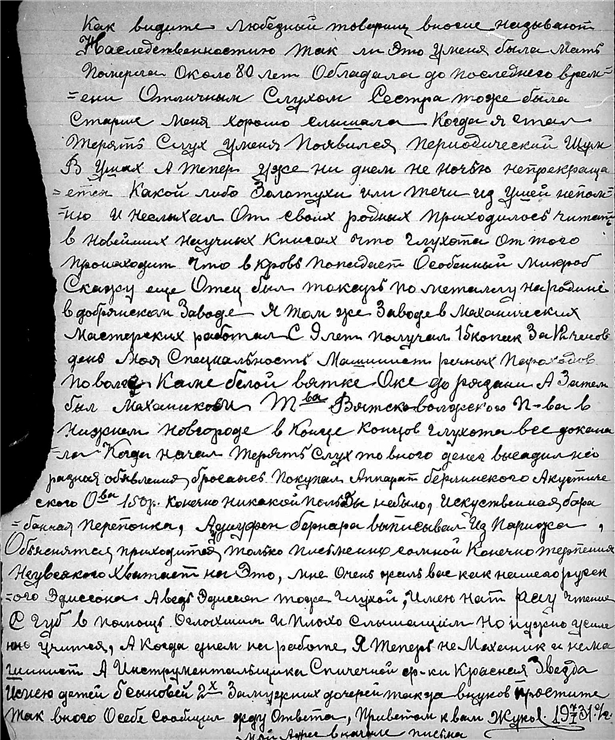 Как видите Любезный товарищ вносле называют
Наследственностию так ли это у меня была Мать
Померла Около 80 лет Обладала до последнего врем=
=ени Отличным Слухом Сестра тоже была
Старше Меня хорошо слышала Когда я стал
Терять Слух у меня Появился Периодический Шум
В Ушах А тепер уже ни днем не ночью непрекраща
=ется Какой либо Золотухи или течи из ушей непом=
=ню И неслыхал От своих родных Приходилось читать
в Новейших Научных Книгах что глухота от того
происходит что в кровь попадает Особенный микроб
Скажу еще Отец был токарь по металу на родине
в добрянском Заводе Я том же Заводе в Механических
Мастерских работал С 9 лет получал 15 копеек За
день Моя Специальность Машинист речных Пароходов
По волге Каме белой вятке Оке до рязани А Затем
был Механиком Т-ва Вятско-волжского П-ва в
Нижнем Новгороде в Конце Концов глухота все докана
=ла Когда начал Терять Слух то много денег высадил на
разная обявления, бросаясь Покупал Аппарат берлинского Акустиче
ского О-ва 150р. Конечно Никакой пользы небыло, Искуственная бара
=банная Перепонка, Бернара выписывал Из Парижа,
Объяснятся приходится только письменно сомной Конечно терпения
Неувсякого Хватает на Это, мне Очень жаль вас как нашего русск
=ого Эдиссона А ведь Эдиссон тоже глухой, Имею чтение
С губ в помощь Оглохшим И Плохо Слышащим Но нужно усилен
но учится, А Когда днем на работе, Я Теперь не Механик и нема
шинист А Инструментальщик Спичечной ф-ки Красная Звезда
Имею детей 6 сыновей 2х Замужних дочерей внуков простите
так много Осебе Сообщил жду Ответа, Приветом к вам Жуков.
Мой Адрес в начале письма